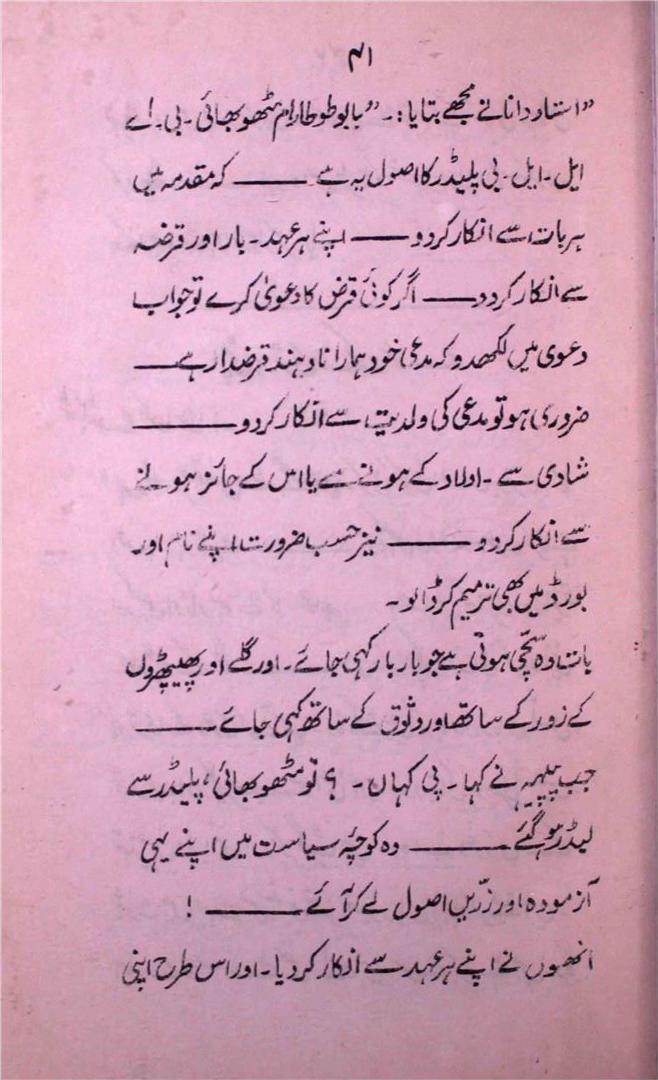 ۴۱
”استاد دانا نے مجھے بتایا:۔ ”بابو طوطا رام مٹھو بھائی۔ بی۔ اے
ایل۔ ایل۔ بی پلیڈر کا اصول یہ ہے ——— کہ مقدمہ میں
ہر بات سے انکار کر دو —— اپنے ہر عہد۔ بار اور قرضہ
سے انکار کر دو —— اگر کوئی قرض کا دعویٰ کرے تو جواب
دعویٰ میں لکھدو کہ مدعی خود ہمارا نادہند قرضدار ہے ——
ضروری ہو تو مدعی کی ولدیت سے انکار کر دو ———
شادی سے۔ اولاد کے ہونے سے یا اس کے جائز ہونے
سے انکار کر دو ——— نیز حسب ضرورت اپنے نام اور
بورڈ میں بھی ترمیم کر ڈالو۔
بات وہ سچّی ہوتی ہے جو بار بار کہی جائے۔ اور گلے اور پھیپھڑوں
کے زور کے ساتھ اور وثوق کے ساتھ کہی جائے ———
جب پپیہے نے کہا۔ پی کہاں۔ ؟ تو مٹھو بھائی، پلیڈر سے
لیڈر ہو گئے ——— وہ کوچۂ سیاست میں اپنے یہی
آزمودہ اور زرّیں اصول لے کر آئے ——— !
انھوں نے اپنے ہر عہد سے انکار کر دیا۔ اور اس طرح اپنی